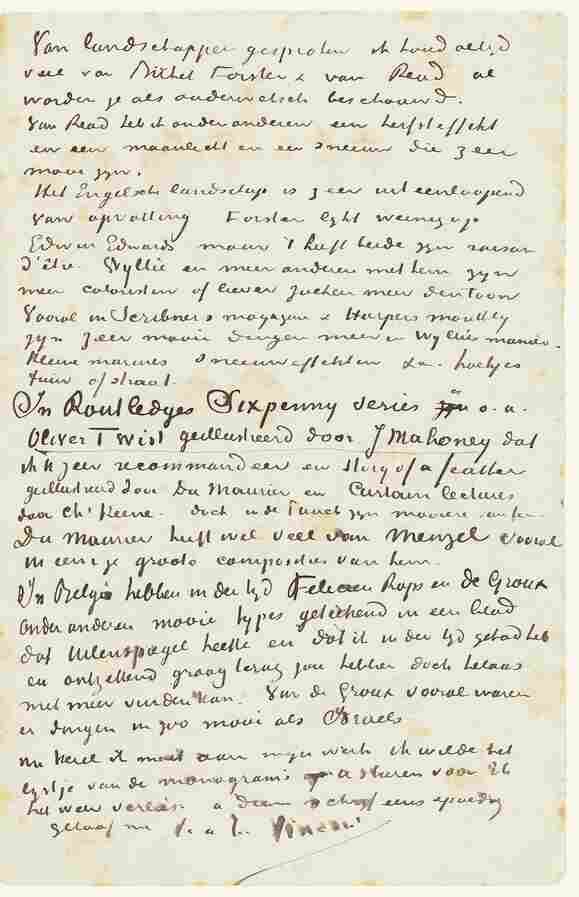 Van landschappen gesproken ik houd altijd
veel van Birket Forster & van Read al
worden ze als ouderwetsch beschouwd.
Van Read heb ik onder anderen een herfsteffekt
en een maanlicht en een sneeuw die zeer
mooi zyn.
Het Engelsch landschap is zeer uiteenloopend
van opvatting Forster lykt weinig op
Edwin Edwards maar 't heeft beide zyn raison
d'être. Wyllie en meer anderen met hem zyn
meer colouristen of liever zoeken meer den toon
Vooral in Scribner's magazyn & Harpers monthly
zyn zeer mooie dingen meer in Wyllies manier.
Kleine marines sneeuweffekten &c. hoekjes
tuin of straat.
In Routledges Sixpenny series zyn o.a.
Oliver Twist geillustreerd door J Mahoney dat
ik U zeer recommandeer en story of a feather
geillustreerd door Du Maurier en Curtain lectures
door Chs Keene. doch in de Punch zyn mooiere van hen
Du Maurier heeft wel veel van Menzel vooral
in eenige groote composities van hem.
In Belgie hebben in der tyd Felicien Rops en de Groux
onder anderen mooie types geteekend in een blad
dat Uilenspiegel heette en dat ik in der tyd gehad heb
en ontzettend graag terug zou hebben doch helaas
niet meer vinden kan. Van de Groux vooral waren
er dingen in zoo mooi als Israels
nu moet ik aan myn werk ik wilde het
lystje van de monogrammes U sturen voor ik
het weer verlies. a Dieu schryf eens spoedig
geloof me t. a t. Vincent